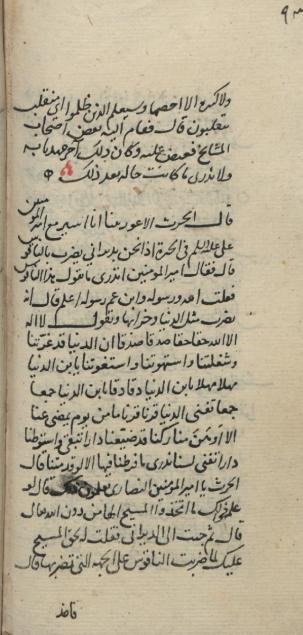 ولا كبيرة الا احصاها وسيعلم الذين ظلموا اى منقلب
ينقلبون قال فقام اليه بعض اصحاب
المشايخ فقبض عليه وكان ذلك آخر عهدنا به
ولا ندرى ما كانت حاله بعد ذلك
قال الحرث الاعور بينا انا اسير مع امير المؤمنين
على عليه السلم فى الحيرة اذا نحن بديرانى يضرب بالناقوس
قال فقال امير المؤمنين اتدرى ما يقول هذا الناقوس
فقلت الله ورسوله وابن عم رسوله اعلم قال انه
يضرب مثل الدنيا وخرابها ويقول لا اله
الا الله حقا حقا صدقا صدقا ان الدنيا قد غرتنا
وشغلتنا واستهوتنا واستغوتنا يابن الدنيا
مهلا مهلا يابن الدنيا دقا دقا يابن الدنيا جمعا
جمعا تفنى الدنيا قرنا قرنا ما من يوم يمضى عنا
الا اوهن منا ركنا قد ضيعنا دارا تبقى واستوطنا
دارا تفنى لسنا ندرى ما فرطنا فيها الا لو قد متنا قال
الحرث يا امير المؤمنين النصارى يعلمون ذلك قال لو
علموا ذلك ما اتخذوا المسيح الها من دون الله قال
قال ثم جئت الى الديرانى فقلت له بحق المسيح
عليك لما ضربت الناقوس على الجهة التى تضربها قال
فاخذ